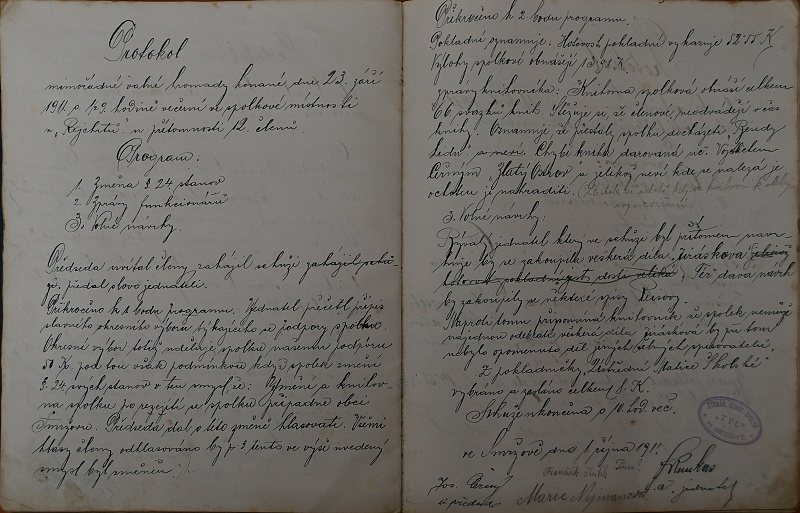 Protokol
mimořádné valné hromady konané dne 23. září
1911 o ½9. hodině večerní ve spolkové místnosti
u „Rejchrtů" u přítomnosti 12. členů.
Program:
1. Změna § 24. stanov
2. Zprávy funkcionářů
3. Volné návrhy.
Předseda uvítal členy zahájil schůzi zahájil schů-
zi. předal slovo jednateli.
Přikročeno k 1. bodu programu. Jednatel přečetl přípis
slavného okresního výboru týkajícího se podpory spolku.
Okresní výbor totiž uděluje spolku našemu podporu
50 K. pod tou však podmínkou když spolek změní
§ 24. svých stanov v ten smysl že: Jmění a knihov-
na spolku po rozejití se spolku připadne obci
Smržovu. Předseda dal o této změně hlasovati. Všemi
hlasy členů odhlasováno by § tento ve výše uvedený
smysl byl změněn.
Přikročeno k 2. bodu programu.
Pokladní oznamuje: Hotovost pokladní vykazuje 82.55 K
Výlohy spolkové obnáší 13.98 K.
zprávy knihovníka: Knihovna spolková obnáší celkem
66 svazků knih. Stěžuje si že členové neodvádějí v čas
knihy. Oznamuje že přestaly spolku docházeti „Besedy
lidu" a neví. Chybí kniha darovaná uč. Vojtěchem
Černým „Zlatý Ostrov" a jelikož neví kde se nalezá je
ochoten ji nahraditi.
3. Volné návrhy:
Bývalý jednatel který ve schůze byl přítomen navr-
huje by se zakoupila veškerá díla Jiráskova jelikož
hotovost pokladní jest dosti veliká. Též dává návrh
by zakoupily se některé spisy Raisovy.
Naproti tomu připomíná knihovník že spolek nemůže
najednou odebrati veškerá díla Jiráskova by při tom
nebylo opomenuto též jiných četných spisovatelů.
Z pokladničky „Ústřední Matice Školské"
vybráno a zasláno celkem 8. K.
Schůze ukončena o 10. hod. več.
ve Smržově dne 1 října 1911.
Jos. Černý
t. č. předseda
František
Marie Nejmanová
t. č. jednatel